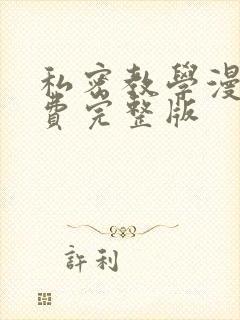 私密教學漫
費完整版
許利